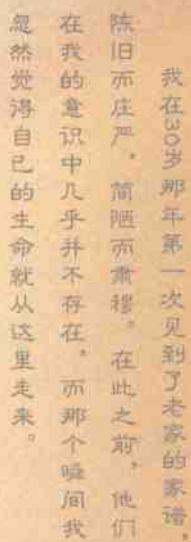 我在30岁那年第一次见到了老家的家谱,
陈旧而庄严,简陋而肃穆。在此之前,他们
在我的意识中几乎并不存在。而那个瞬间我
忽然觉得自己的生命就从这里走来。